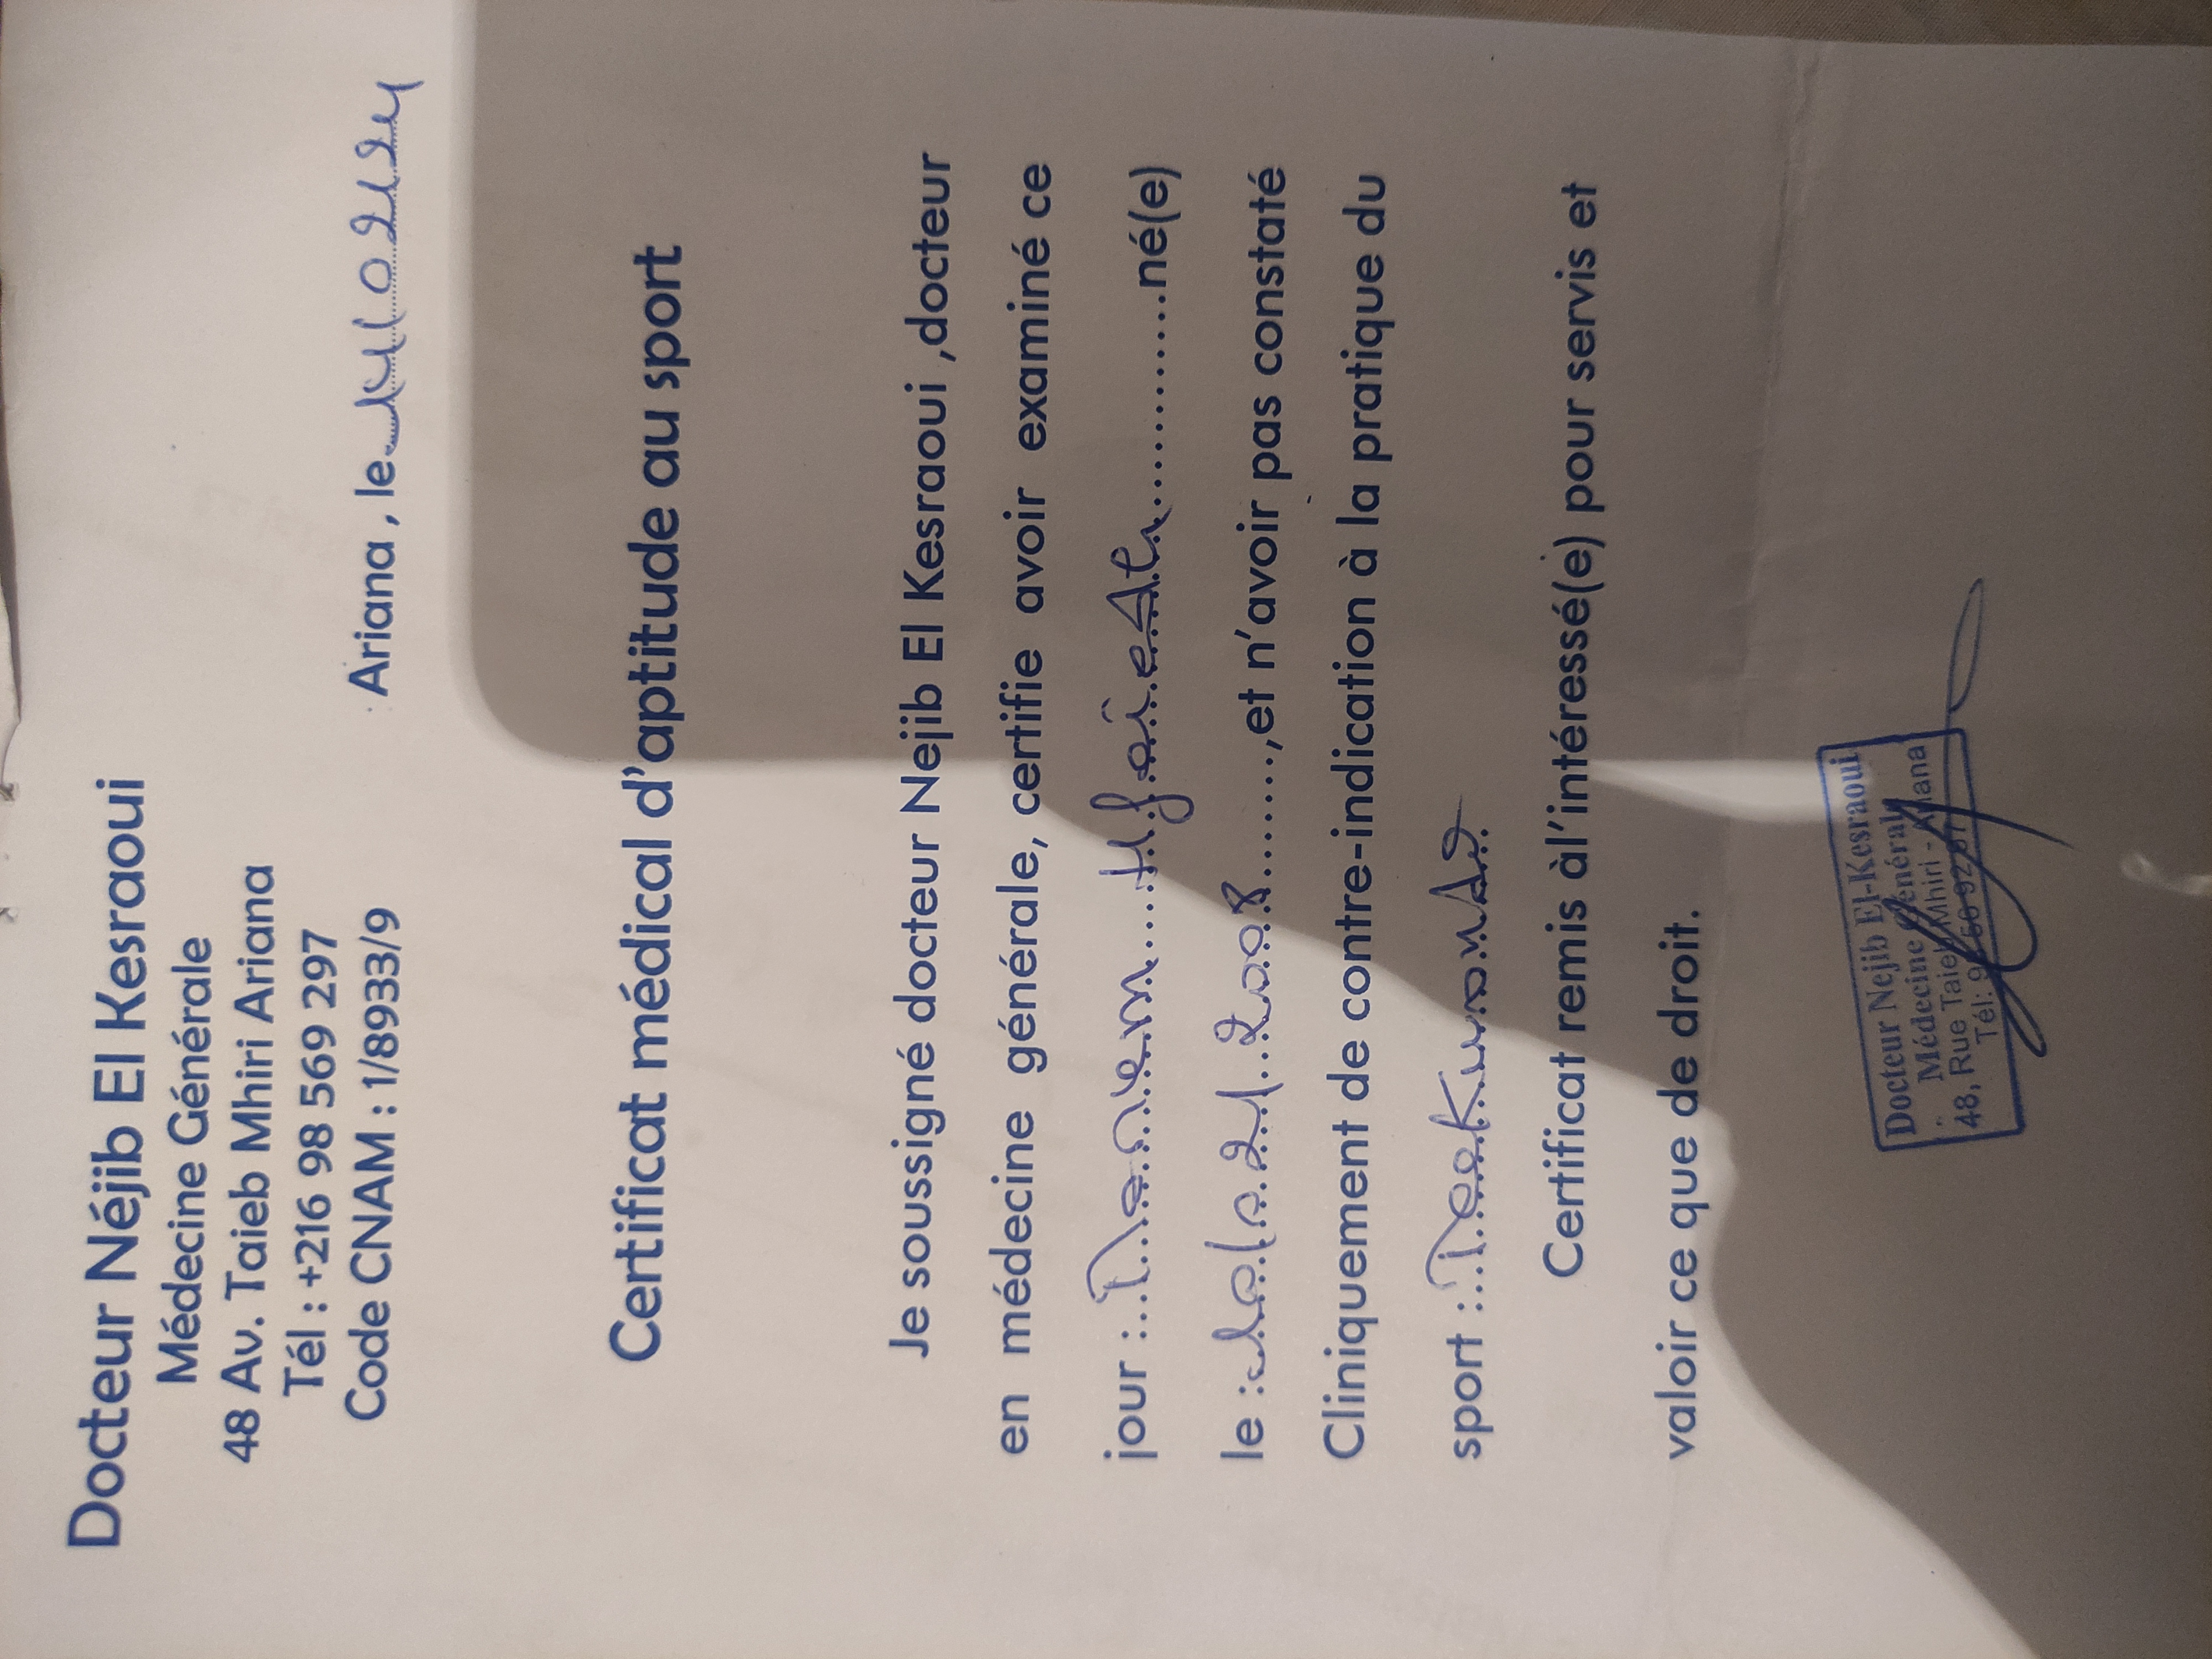 Docteur Néjib El Kesraoui
Médecine Générale
48 Av. Taieb Mhiri Ariana
Tél : +216 98 569 297
Code CNAM : 1/8933/9
Ariana , le
Certificat médical d'aptitude au sport
Je soussigné docteur Nejib El Kesraoui ,docteur
en médecine générale, certifie avoir examiné ce
jour : né(e)
le : 2008 ,et n'avoir pas constaté
Cliniquement de contre-indication à la pratique du
sport : Taekwondo
Certificat remis àl'intéressé(e) pour servis et
valoir ce que de droit.
Docteur Nejib El-Kesraoui
Médecine Générale
48, Rue Taieb Mhiri - Ariana
Tél: